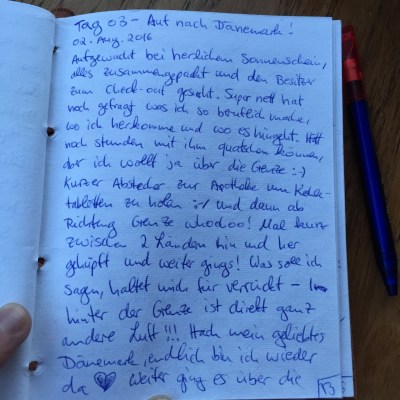 Tag 03 - Auf nach Dänemark!
02. Aug. 2016
Aufgewacht bei herrlichem Sonnenschein,
alles zusammengepackt und den Besitzer
zum Check-out gesucht. Super nett hat
noch gefragt was ich so beruflich mache,
wo ich herkomme und wo es hingeht. Hätt
noch stunden mit ihm quatschen können,
aber ich wollt ja über die Grenze :-)
Kurzer Abstecher zur Apotheke um Kohle-
tabletten zu holen :-/ und dann ab
Richtung Grenze whodoo! Mal kurz
zwischen 2 Ländern hin und her
gehüpft und weiter gings! Was soll ich
sagen, haltet mich für verrückt -
hinter der Grenze ist direkt ganz
andere Luft!!! Hach mein geliebtes
Dänemark, endlich bin ich wieder
da ♥ weiter ging es über die